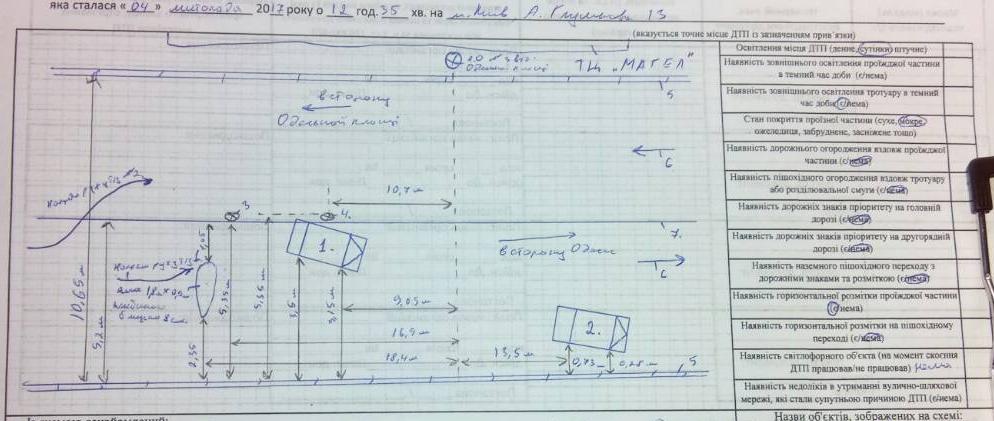 яка сталася «04» листопада 2017 року о 12 год. 35 хв. на м. Київ
(вказується точне місце ДТП із зазначенням прив'язки)
ТЦ „МАГЕЛ"
в сторону
Одеської площі
5
6
10,7 м
3
4.
1.
7.
в сторону Одеси
6
10,65 м
5,2 м
5,35 м
5,55 м
3,6 м
3,15 м
2,35
9,05 м
16,9 м
18,4 м
13,5 м
2.
0,73
0,28 м
5
Освітлення місця ДТП (денне, сутінки, штучне)
Наявність зовнішнього освітлення проїжджої частини
в темний час доби (є/нема)
Наявність зовнішнього освітлення тротуару в темний
час доби (є/нема)
Стан покриття проїзної частини (сухе, мокре,
ожеледиця, забруднене, засніжене тощо)
Наявність дорожнього огородження вздовж проїжджої
частини (є/нема)
Наявність пішохідного огородження вздовж тротуару
або розділювальної смуги (є/нема)
Наявність дорожніх знаків пріоритету на головній
дорозі (є/нема)
Наявність дорожніх знаків пріоритету на другорядній
дорозі (є/нема)
Наявність наземного пішохідного переходу з
дорожніми знаками та розміткою (є/нема)
Наявність горизонтальної розмітки проїжджої частини
(є/нема)
Наявність горизонтальної розмітки на пішохідному
переході (є/нема)
Наявність світлофорного об'єкта (на момент скоєння
ДТП працював/не працював) нема
Наявність недоліків в утриманні вулично-шляхової
мережі, які стали супутньою причиною ДТП (є/нема)
Назви об'єктів, зображених на схемі: